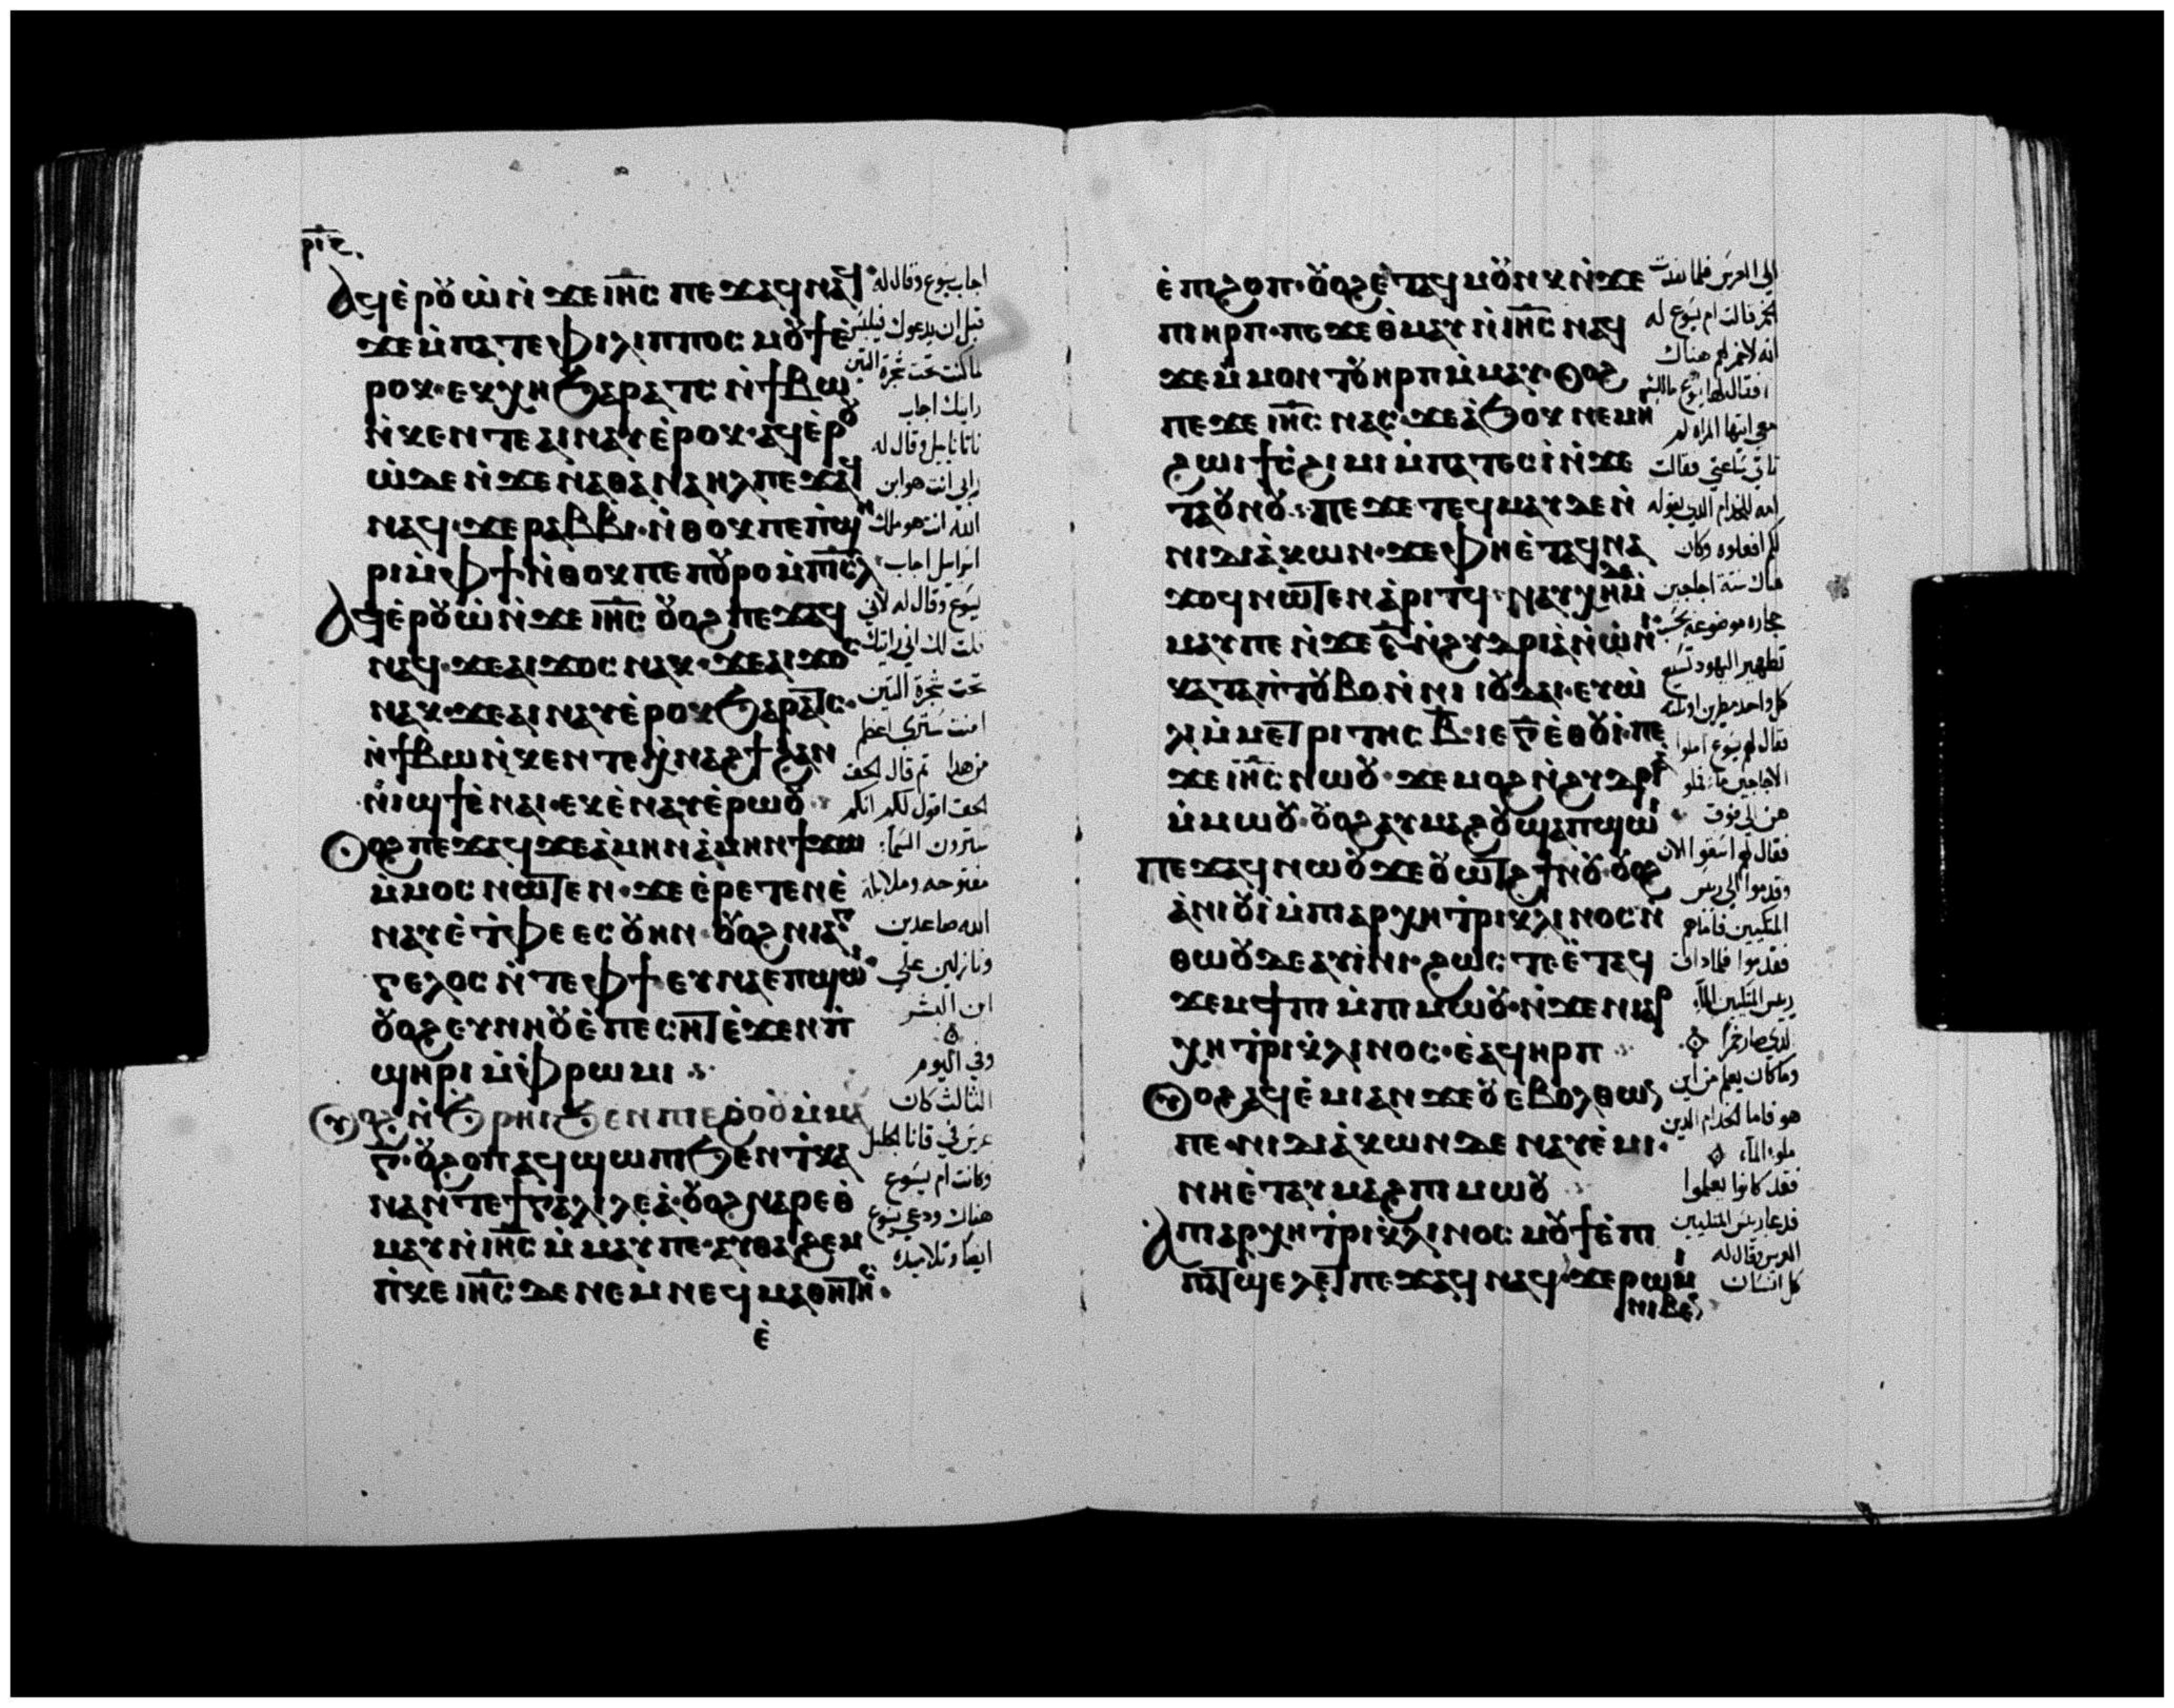 ⲣⲓⲋ
Ⲁϥⲉ̀ⲣⲟⲩⲱ̀ ⲛ̀ϫⲉ ⲓⲏ̅ⲥ̅ ⲡⲉϫⲁϥ ⲛⲁϥ
ϫⲉ ⲙ̀ⲡⲁⲧⲉ ⲫⲓⲗⲓⲡⲡⲟⲥ ⲙⲟⲩϯ ⲉ̀
ⲣⲟⲕ· ⲉⲕⲭⲏ ϧⲁⲣⲁⲧⲥ ⲛ̀ϯⲃⲱ
ⲛ̀ⲕⲉⲛⲧⲉ ⲁⲓⲛⲁⲩ ⲉ̀ⲣⲟⲕ· ⲁϥⲉ̀ⲣⲟⲩ
ⲱ̀ ⲇⲉ ⲛ̀ϫⲉ ⲛⲁⲑⲁⲛⲁⲏⲗ ⲡⲉϫⲁϥ
ⲛⲁϥ· ϫⲉ ⲣⲁⲃⲃⲓ· ⲛ̀ⲑⲟⲕ ⲡⲉ ⲡ̀ϣⲏ
ⲣⲓ ⲙ̀ⲫϯ ⲛ̀ⲑⲟⲕ ⲡⲉ ⲡⲟⲩⲣⲟ ⲙ̀ⲡⲓⲥ̅ⲗ̅
Ⲁϥⲉ̀ⲣⲟⲩⲱ̀ ⲛ̀ϫⲉ ⲓⲏ̅ⲥ̅ ⲟⲩⲟϩ ⲡⲉϫⲁϥ
ⲛⲁϥ· ϫⲉ ⲁⲓϫⲟⲥ ⲛⲁⲕ· ϫⲉ ⲁⲓϫⲟⲥ
ⲛⲁⲕ· ϫⲉ ⲁⲓⲛⲁⲩ ⲉ̀ⲣⲟⲕ ϧⲁⲣⲁⲧⲥ·
ⲛ̀ϯⲃⲱ ⲛ̀ⲕⲉⲛⲧⲉ ⲭ̀ⲛⲁϩϯ ϩⲁⲛ
ⲛⲓϣϯ ⲉ̀ⲛⲁⲓ· ⲉⲕⲉ̀ⲛⲁⲩ ⲉ̀ⲣⲱⲟⲩ
Ⲟⲩⲟϩ ⲡⲉϫⲁϥ ϫⲉ ⲁ̀ⲙⲏⲛ ⲁ̀ⲙⲏⲛ ϯϫⲱ
ⲙ̀ⲙⲟⲥ ⲛⲱⲧⲉⲛ· ϫⲉ ⲉ̀ⲣⲉⲧⲉⲛⲉ̀
ⲛⲁⲩ ⲉ̀ⲧ̀ⲫⲉ ⲉⲥⲟⲩⲏⲛ· ⲟⲩⲟϩ ⲛⲓⲁⲅ
ⲅⲉⲗⲟⲥ ⲛ̀ⲧⲉ ⲫϯ ⲉⲩⲛⲁ ⲉⲡϣⲱⲓ·
ⲟⲩⲟϩ ⲉⲩⲛⲏⲟⲩ ⲉ̀ⲡⲉⲥⲏⲧ ⲉ̀ϫⲉⲛ ⲡ̀
ϣⲏⲣⲓ ⲙ̀ⲫⲣⲱⲙⲓ
Ⲟⲩⲟϩ ⲛ̀ϧⲣⲏⲓ ϧⲉⲛ ⲡⲓⲉϩⲟⲟⲩ ⲙ̀ⲙⲁϩ
ⲅ̅· ⲟⲩϩⲟⲡ ⲁϥϣⲱⲡⲓ ϧⲉⲛ ⲧ̀ⲕⲁ
ⲛⲁ ⲛ̀ⲧⲉ ϯⲅⲁⲗⲓⲗⲉⲁ̀· ⲟⲩⲟϩ ⲛⲁⲣⲉ ⲑ̀
ⲙⲁⲩ ⲛ̀ⲓⲏ̅ⲥ̅ ⲙ̀ⲙⲁⲩ ⲡⲉ· ⲁⲩⲑⲁϩⲉⲙ
ⲡ̀ⲕⲉ ⲓⲏ̅ⲥ̅ ⲇⲉ ⲛⲉⲙ ⲛⲉϥⲙⲁⲑⲏⲧⲏⲥ·
ⲉ̀
اجاب يسوع وقال له
قبل ان يدعوك فيلبس
لما كنت تحت شجرة التين
رايتك اجاب
ناثانائيل وقال له
رابي انت هو ابن
الله انت هو ملك
اسراييل اجاب
يسوع وقال له لاني
قلت لك اني رايتك
تحت شجرة التين
امنت سترى اعظم
من هدا تم قال الحق
الحق اقول لكم انكم
سترون السما
مفتوحه وملايكة
الله صاعدين
ونازلين على
ابن البشر
وفي اليوم
الثالث كان
عرس في قانا الجليل
وكانت ام يسوع
هناك ودعي يسوع
ايضا وتلاميده
ⲉ̀ ⲡⲓϩⲟⲡ· ⲟⲩⲟϩ ⲉ̀ⲧⲁϥⲙⲟⲩⲛⲕ ⲛ̀ϫⲉ
ⲡⲓⲏⲣⲡ· ⲡⲉϫⲉ ⲑ̀ⲙⲁⲩ ⲛ̀ⲓⲏ̅ⲥ̅ ⲛⲁϥ
ϫⲉ ⲙ̀ⲙⲟⲛ ⲧⲟⲩ ⲏⲣⲡ ⲙ̀ⲙⲁⲩ· Ⲟⲩⲟϩ
ⲡⲉϫⲉ ⲓⲏ̅ⲥ̅ ⲛⲁⲥ· ϫⲉ ⲁ̀ϧⲟⲕ ⲛⲉⲙⲏⲓ
ϩⲱⲓ ϯⲥϩⲓⲙⲓ ⲙ̀ⲡⲁⲧⲉⲥⲓ̀ ⲛ̀ϫⲉ
ⲧⲁⲟⲩⲛⲟⲩ· ⲡⲉϫⲉ ⲧⲉϥⲙⲁⲩ ⲇⲉ ⲛ̀
ⲛⲓⲇⲓⲁ̀ⲕⲱⲛ· ϫⲉ ⲫⲏⲉ̀ⲧⲁϥⲛⲁ
ϫⲟϥ ⲛⲱⲧⲉⲛ ⲁ̀ⲣⲓⲧϥ· ⲛⲁⲩⲭⲏ ⲇⲉ ⲙ̀
ⲙⲁⲩ ⲡⲉ ⲛ̀ϫⲉ ⲋ̅ ⲛ̀ϩⲩⲇⲣⲓⲁ̀ ⲛ̀ⲱ̀ⲛⲓ
ⲕⲁⲧⲁ ⲡ̀ⲧⲟⲩⲃⲟ ⲛ̀ⲛⲓⲓⲟⲩⲇⲁⲓ· ⲉⲩⲱ̀
ⲗⲓ ⲙ̀ⲙⲉⲧⲣⲓⲧⲏⲥ ⲃ̅· ⲓⲉ ⲅ̅ ⲉ̀ⲑⲟⲩⲓ̀· ⲡⲉ
ϫⲉ ⲓⲏ̅ⲥ̅ ⲛⲱⲟⲩ· ϫⲉ ⲙⲟϩ ⲛ̀ϩⲩⲇⲣⲓⲁ
ⲙ̀ⲙⲱⲟⲩ· ⲟⲩⲟϩ ⲁⲩⲙⲁϩⲟⲩ ϣⲁ ⲡϣⲱⲓ
ⲡⲉϫⲁϥ ⲛⲱⲟⲩ ϫⲉ ⲟⲩⲱⲧϩ ϯⲛⲟⲩ· ⲟⲩⲟϩ
ⲁ̀ⲛⲓⲟⲩⲓ̀ ⲙ̀ⲡⲓⲁⲣⲭⲏⲧ̀ⲣⲓⲕ̀ⲗⲓⲛⲟⲥ ⲛ̀
ⲑⲱⲟⲩ ⲇⲉ ⲁⲩⲓ̀ⲛⲓ· ϩⲱⲥ ⲧⲉ ⲉ̀ⲧⲁϥ
ϫⲉⲙϯⲡⲓ ⲙ̀ⲡⲓⲙⲱⲟⲩ· ⲛ̀ϫⲉ ⲡⲓⲁⲣ
ⲭⲏⲧ̀ⲣⲓⲕ̀ⲗⲓⲛⲟⲥ· ⲉ̀ⲁϥⲏⲣⲡ
Ⲟⲩⲟϩ ⲁϥⲉ̀ⲙⲓ ⲁⲛ ϫⲉ ⲟⲩ ⲉⲃⲟⲗ ⲑⲱⲛ
ⲡⲉ· ⲛⲓⲇⲓⲁ̀ⲕⲱⲛ ⲇⲉ ⲛⲁⲩⲉ̀ⲙⲓ·
ⲛⲏⲉ̀ⲧⲁⲩⲙⲁϩ ⲡⲓⲙⲱⲟⲩ
Ⲁ ⲡⲓⲁⲣⲭⲏⲧ̀ⲣⲓⲕ̀ⲗⲓⲛⲟⲥ ⲙⲟⲩϯ ⲉ̀ⲡⲓ
ⲡⲁⲧϣⲉⲗⲉⲧ ⲡⲉϫⲁϥ ⲛⲁϥ· ϫⲉ ⲣⲱⲙⲓ
ⲛⲓⲃⲉⲛ
الى العرس فلما نفدت
الخمر قالت ام يسوع له
انه لا خمر لهم هناك
فقال لها يسوع مالك
معي ايتها المراه لم
تاتي ساعتي فقالت
امه للخدام الدي يقوله
لكم افعلوه وكان
هناك ستة اجاجين
حجاره موضوعه بحسب
تطهير اليهود تسع
كل واحد مطرين او تلته
فقال لهم يسوع املوا
الاجاجين ما فملو
هن الى فوق
فقال لهم اسقوا الان
وقدموا الى ريس
المتكيين فاما هم
فقدموا فلما داق
ريس المتكيين الما
الدي صار خمرا
وما كان يعلم من اين
هو فاما الخدام الدين
ملوا الماء
فقد كانوا يعلموا
فدعا ريس المتكيين
العريس وقال له
كل انسان